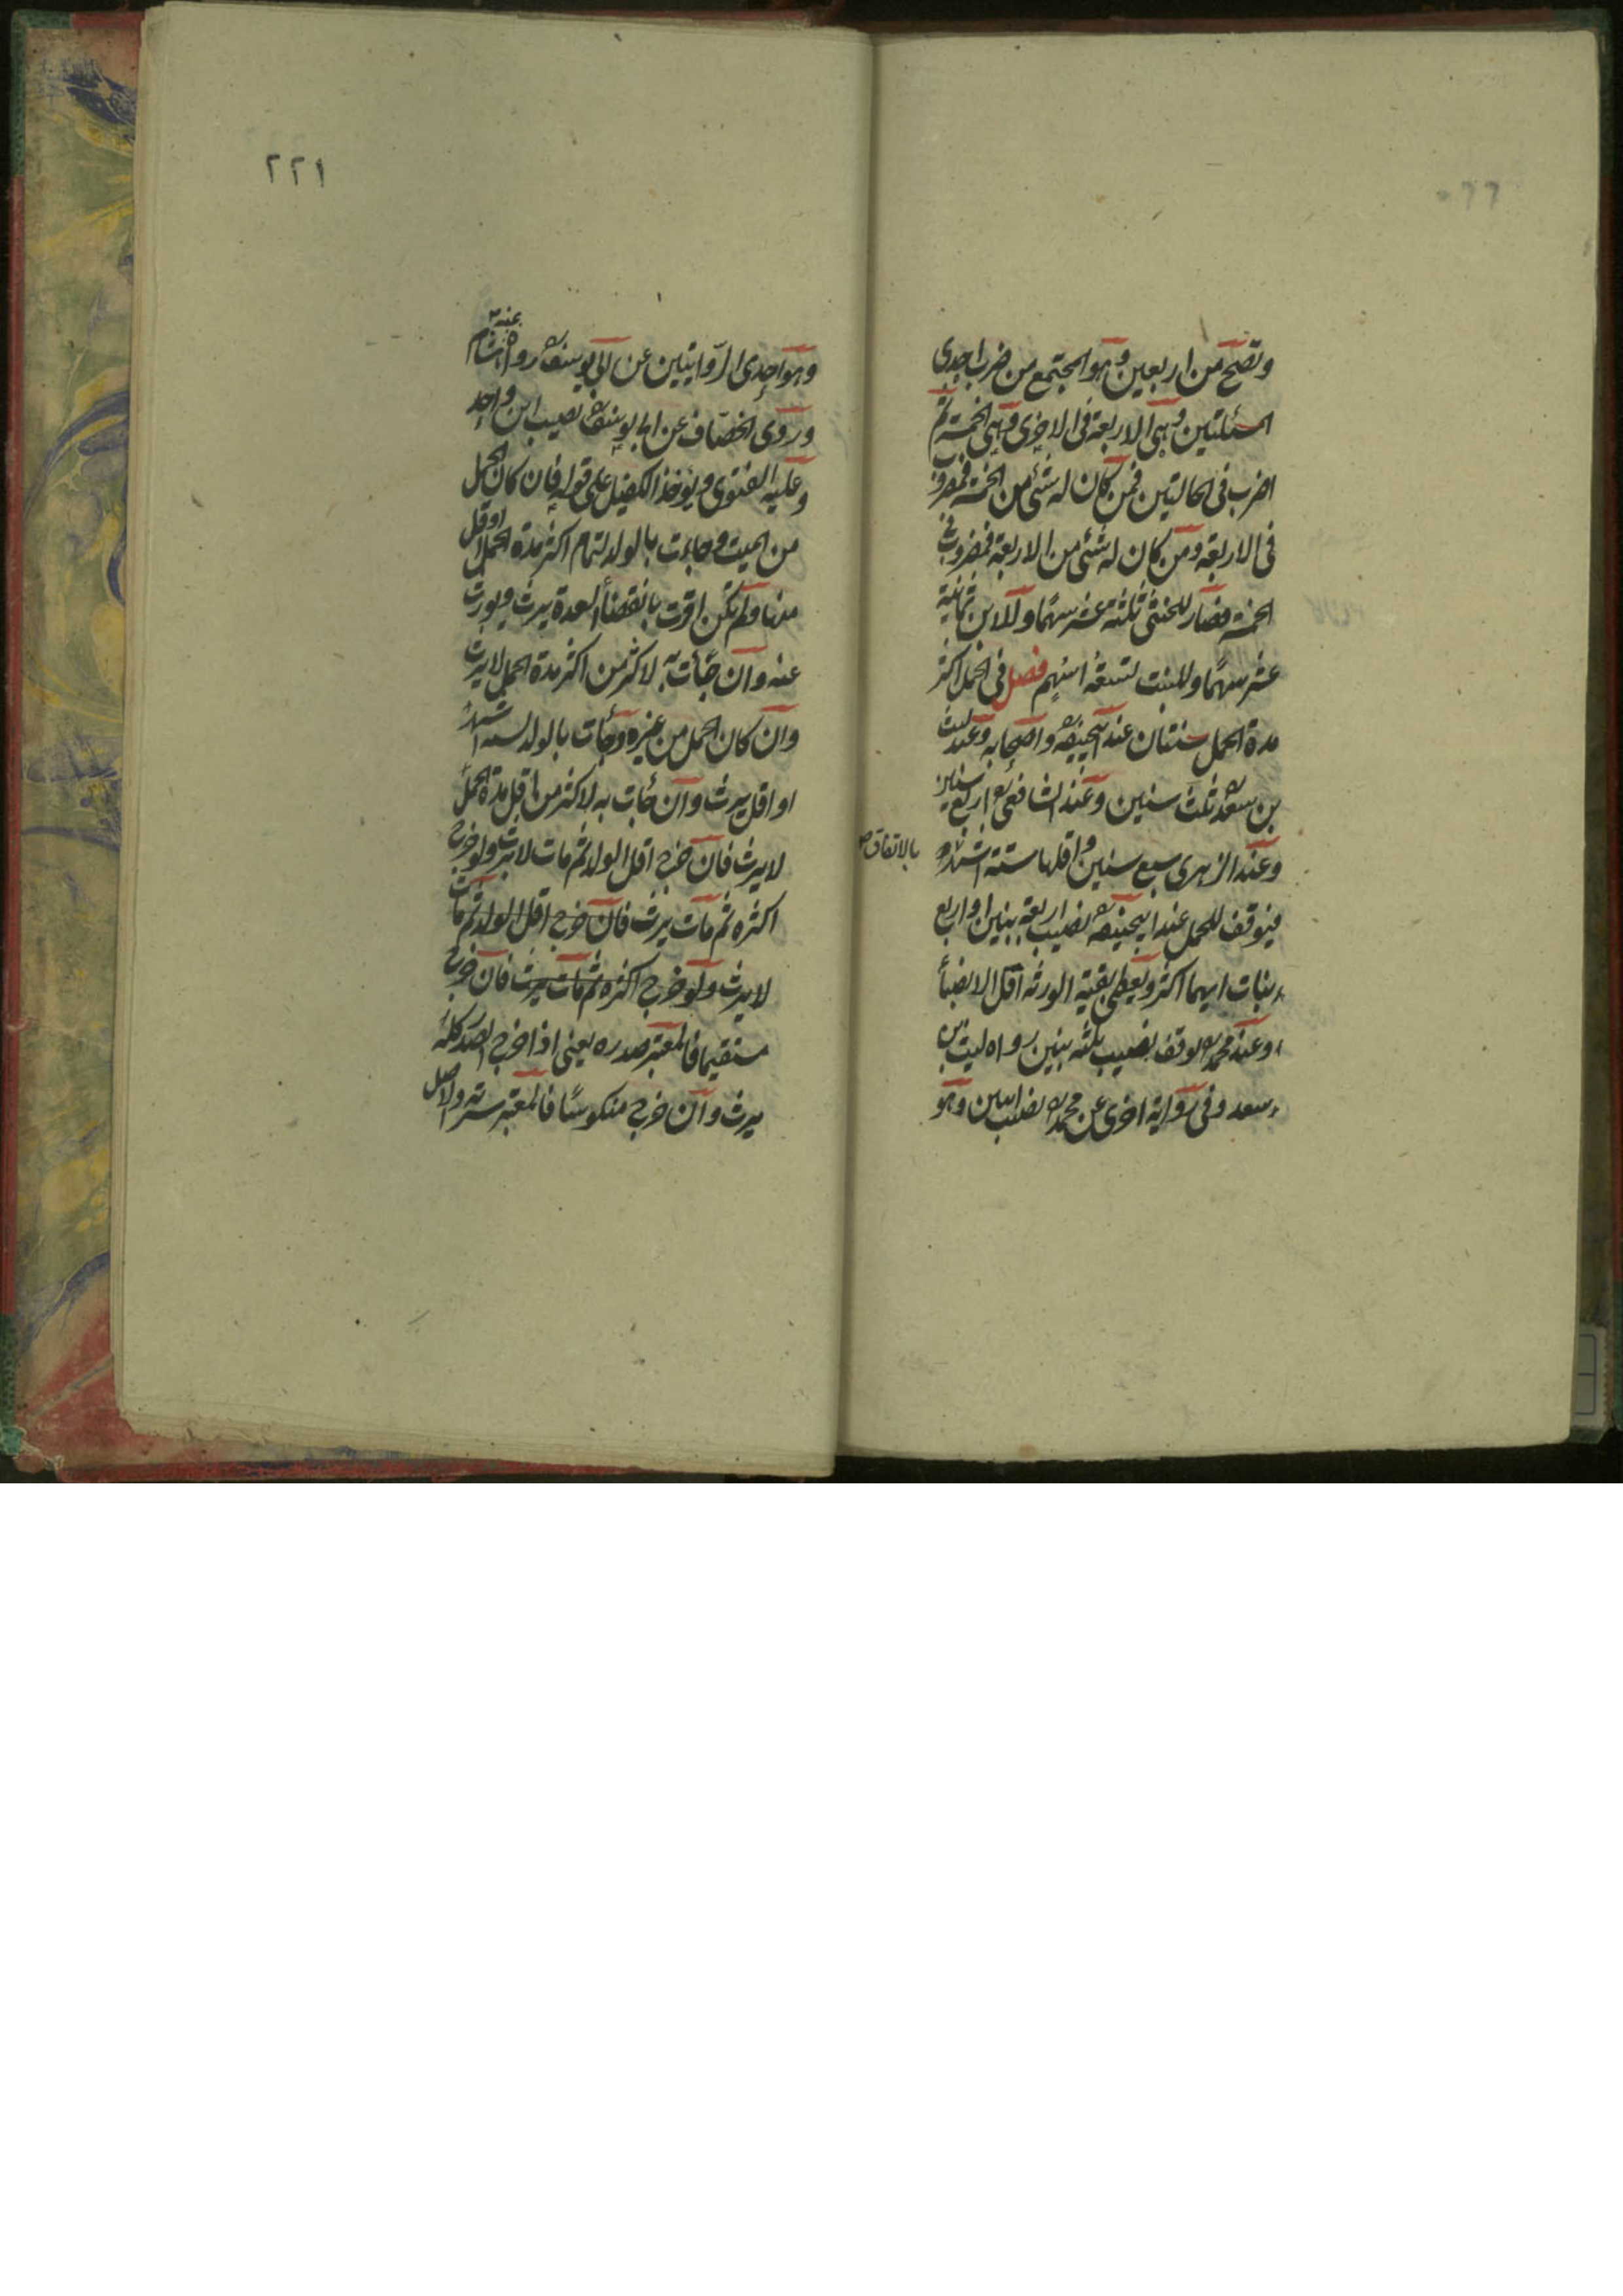 وتصح من اربعين وهو المجتمع من ضرب احدى
المسئلتين وهى الاربعة فى الاخرى وهى الخمسة ثم
اضرب فى الحالتين فمن كان له شئ من الخمسة فمضروب
فى الاربعة ومن كان له شئ من الاربعة فمضروب فى
الخمسة فصار للخنثى ثلثة عشر سهمًا وللابن ثمانية
عشر سهمًا وللبنت تسعة اسهم فصل فى الحمل اكثر
مدة الحمل سنتان عند ابيحنيفه وا صحابه وعند ليث
بن سعد ثلث سنين وعند الشافعى اربع سنين
وعند الزهرى سبع سنين واقلها ستة اشهر و
بالاتفاق
فيوقف للحمل عند ابيحنيفه نصيب اربعة بنين او اربع
بنات ايهما اكثر ويعطى بقية الورثه اقل الانصباء
وعند محمد يوقف نصيب ثلثه بنين رواه ليث بن
سعد وفى رواية اخرى عن محمد نصيب ابنين وهو
٢٢١
وهو احدى الروايتين عن ابى يوسف رواه هشام
عنه
وروى الخصاف عن ابى يوسف نصيب ابن واحد
وعليه الفتوى ويوخذ الكفيل على قوله فان كان الحمل
من الميت وجاءت بالولد لتمام اكثر مدة الحمل او اقل
منها ولم تكن اقرت بانقضاء العدة يرث ويورث
عنه وان جاءت به لاكثر من اكثر مدة الحمل لا يرث
وان كان الحمل من غيره وجاءت بالولد لسته اشهر
او اقل يرث وان جاءت به لاكثر من اقل مدة الحمل
لا يرث فان خرج اقل الولد ثم مات لا يرث ولو خرج
اكثره ثم مات يرث فان خرج اقل الولد ثم مات
لا يرث ولو خرج اكثره ثم مات يرث فان خرج
مستقيما فالمعتبر صدره يعنى اذا خرج الصدر كله
يرث وان خرج منكوسًا فالمعتبر سرته والاصل